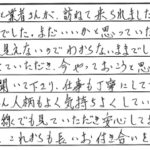 業者さんが、訪ねて来られました
でした。まだいいかと思っていた
見えないのでわからないままでし
ていただき、今やっておこうと思
聞いて下り、仕事も丁寧にして
人柄もよく気持ちよくしてい
線でも見ていただき安心してま
これからも長いお付き合いを